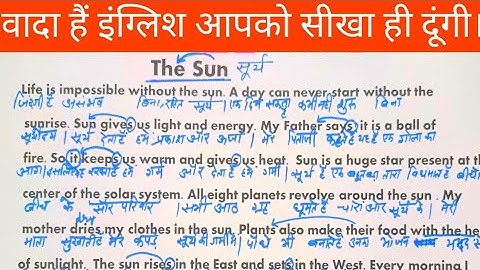 वादा हैं इंग्लिश आपको सीखा ही दूंगी।
The Sun सूर्य
Life is impossible without the sun. A day can never start without the
जिंदगी है असंभव बिना सूर्य एक दिन सकता कभी नहीं शुरू बिना
sunrise. Sun gives us light and energy. My Father says it is a ball of
सूर्योदय | सूर्य देता है हमे प्रकाश और ऊर्जा | मेरे पिताजी कहते हैं यह है एक गोला का
fire. So it keeps us warm and gives us heat. Sun is a huge star present at the
आग | इसलिए यह रखता है हमें गर्म और देता है हमें गर्मी | सूर्य है एक तारा विद्यमान है
center of the solar system. All eight planets revolve around the sun. My
बीच के सौर परिवार | सभी आठ ग्रह घूमते हैं चारो ओर सूर्य के | मेरी
mother dries my clothes in the sun. Plants also make their food with the he
माता सुखाती है मेरे कपड़े सूर्य की गर्मी में | पौधे भी बनाते हैं अपना भोजन मदद से
of sunlight. The sun rises in the East and sets in the West. Every morning I